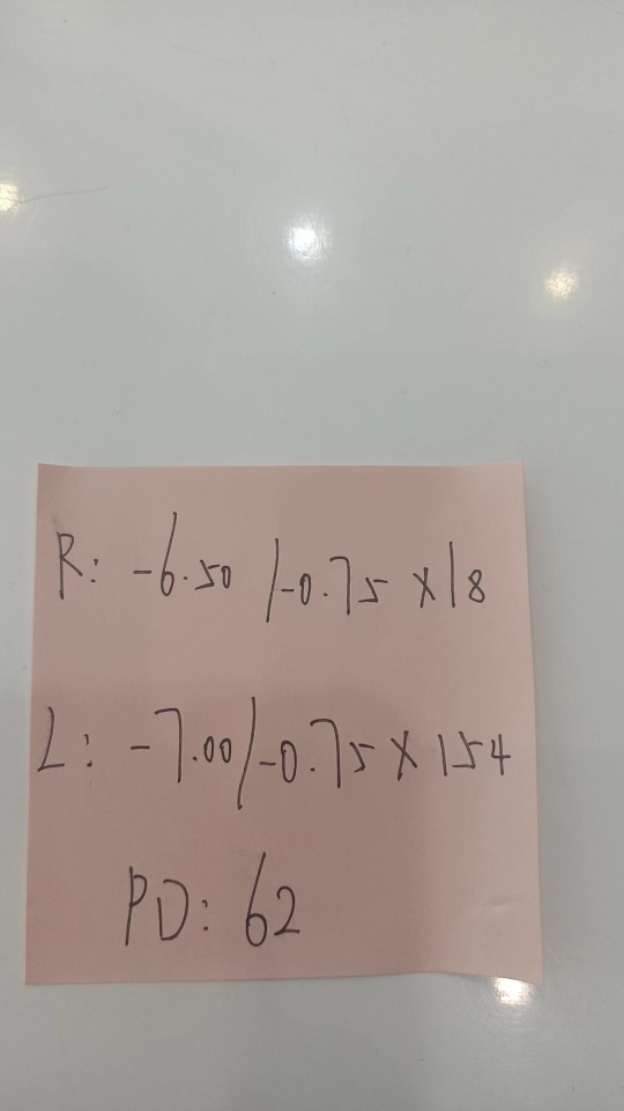 R: -6.50 /-0.75 X18
L: -7.00/-0.75 X 154
PD: 62